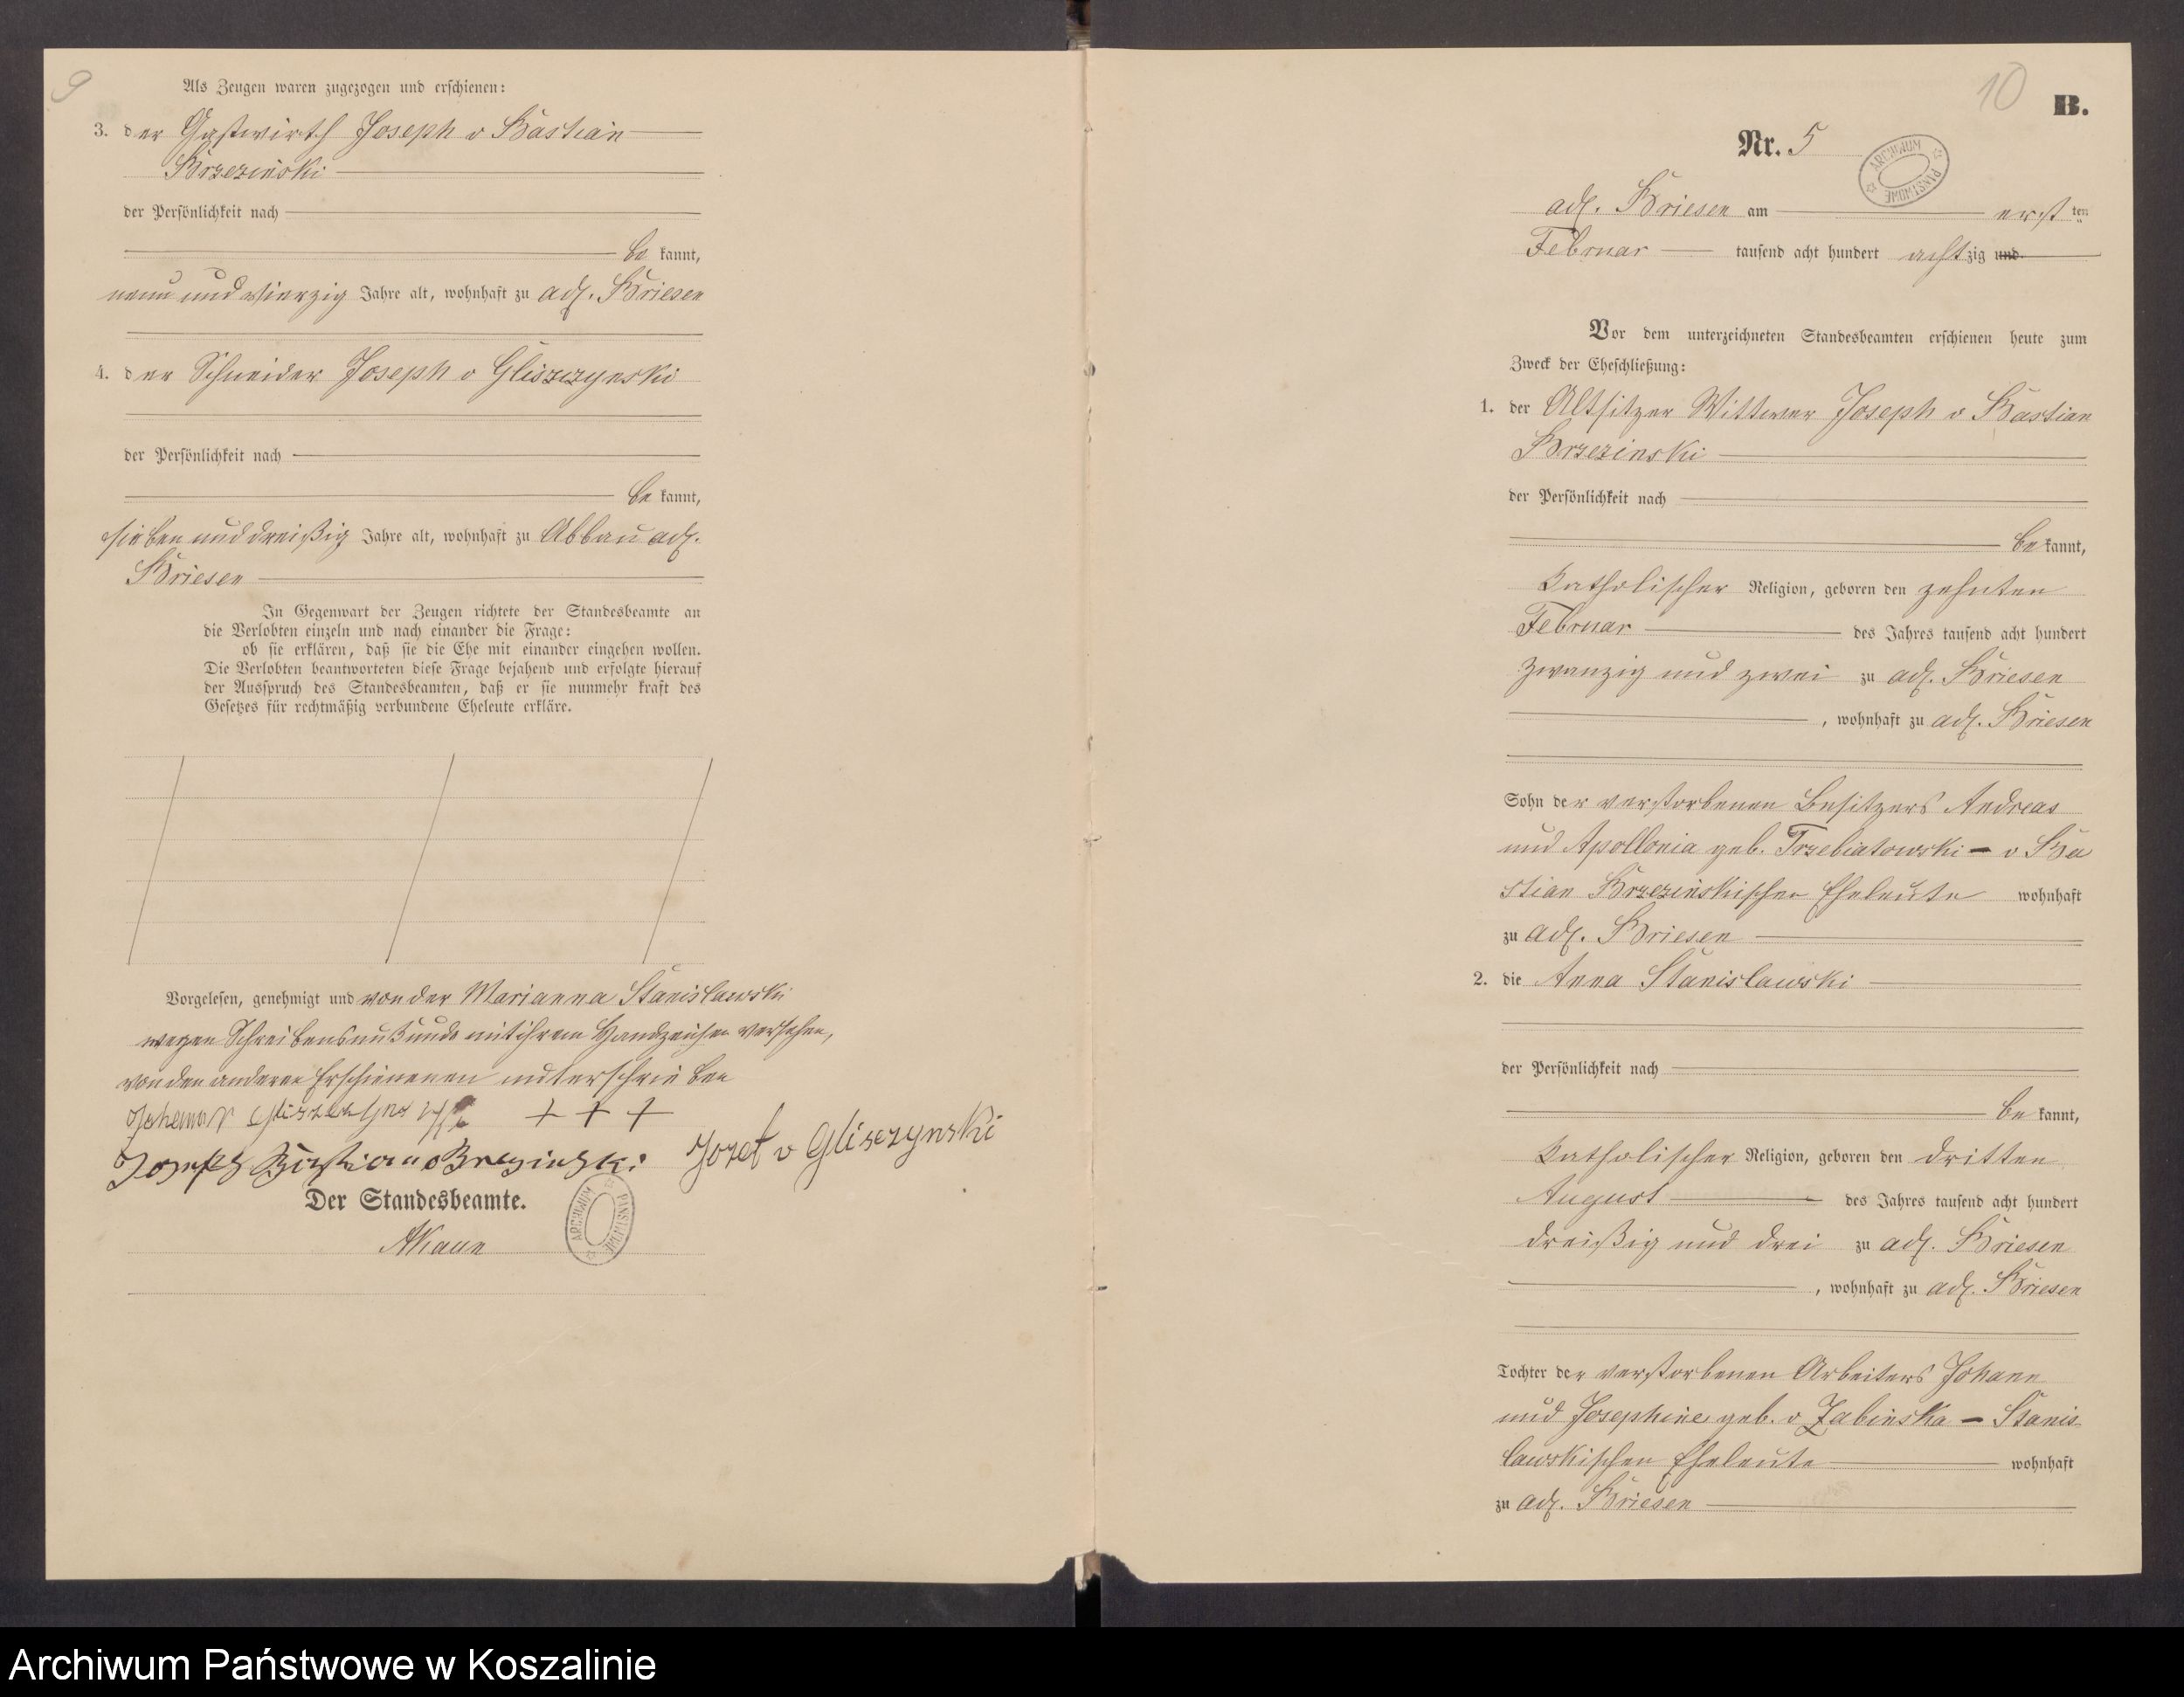 9
Als Zeugen waren zugezogen und erschienen:
3. der Gastwirth Joseph v Bastian
Brzezinski
der Persönlichkeit nach
be kannt,
neun und vierzig Jahre alt, wohnhaft zu adl. Briesen
4. der Schneider Joseph v Gliszczynski
der Persönlichkeit nach
be kannt,
sieben und dreißig Jahre alt, wohnhaft zu Abbau adl.
Briesen
In Gegenwart der Zeugen richtete der Standesbeamte an
die Verlobten einzeln und nach einander die Frage:
ob sie erklären, daß sie die Ehe mit einander eingehen wollen.
Die Verlobten beantworteten diese Frage bejahend und erfolgte hierauf
der Ausspruch des Standesbeamten, daß er sie nunmehr kraft des
Gesetzes für rechtmäßig verbundene Eheleute erkläre.
Vorgelesen, genehmigt und von der Marianna Stanislawski
wegen Schreibensunkunde mit ihrem Handzeichen versehen,
von den anderen Erschienenen unterschrieben
+ + +
Joseph Bastian v Jozef v Gliszczynski
Der Standesbeamte.
ARCHIWUM PAŃSTWOWE
10
B.
Nr. 5
ARCHIWUM PAŃSTWOWE
adl. Briesen am erst ten
Februar tausend acht hundert achtzig und
Vor dem unterzeichneten Standesbeamten erschienen heute zum
Zweck der Eheschließung:
1. der Altsitzer Wittwer Joseph v Bastian
Brzezinski
der Persönlichkeit nach
be kannt,
katholischer Religion, geboren den zehnten
Februar des Jahres tausend acht hundert
zwanzig und zwei zu adl. Briesen
, wohnhaft zu adl. Briesen
Sohn der verstorbenen Besitzers Andreas
und Apollonia geb. Trzebiatowski - v Ba
stian Brzezinskischen Eheleute wohnhaft
zu adl. Briesen
2. die Anna Stanislawski
der Persönlichkeit nach
be kannt,
katholischer Religion, geboren den dritten
August des Jahres tausend acht hundert
dreißig und drei zu adl. Briesen
, wohnhaft zu adl. Briesen
Tochter der verstorbenen Arbeiters Johann
und Josephine geb. v Zabinska - Stanis
lawskischen Eheleute wohnhaft
zu adl. Briesen
Archiwum Państwowe w Koszalinie